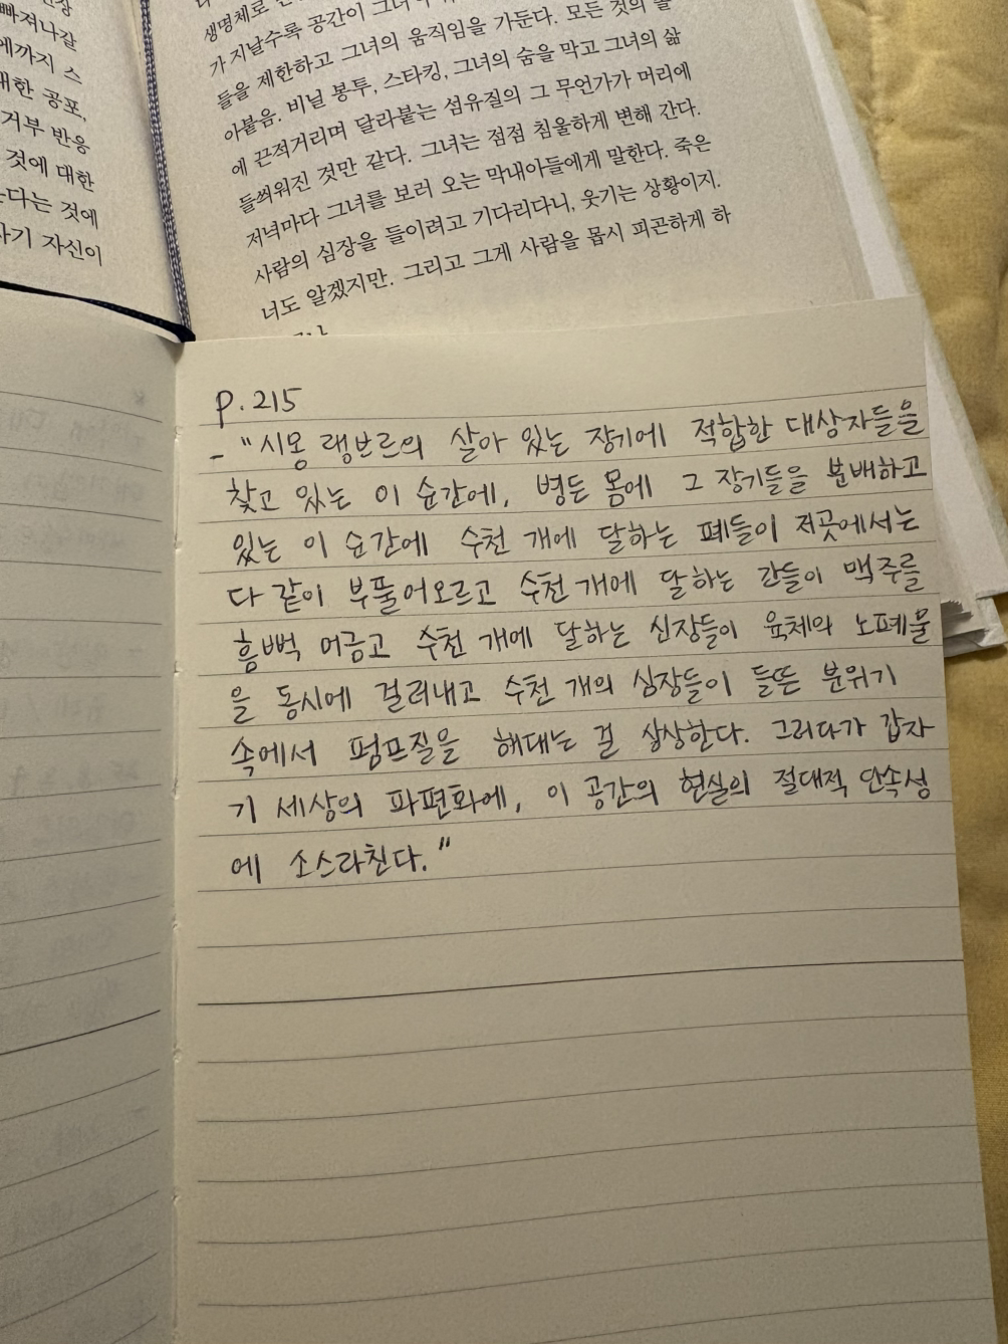 빠져나갈
에까지 스
대한 공포,
거부 반응
것에 대한
다는 것에
자기 자신이
생명체로
가 지날수록 공간이
들을 제한하고 그녀의 움직임을 가둔다. 모든 것의
아붙음. 비닐 봉투, 스타킹, 그녀의 숨을 막고 그녀의 삶
에 끈적거리며 달라붙는 섬유질의 그 무언가가 머리에
들씌워진 것만 같다. 그녀는 점점 침울하게 변해 간다.
저녁마다 그녀를 보러 오는 막내아들에게 말한다. 죽은
사람의 심장을 들이려고 기다리다니, 웃기는 상황이지.
너도 알겠지만. 그리고 그게 사람을 몹시 피곤하게 하
p.215
- "시몽 랭브르의 살아 있는 장기에 적합한 대상자들을
찾고 있는 이 순간에, 병든 몸에 그 장기들을 분배하고
있는 이 순간에 수천 개에 달하는 폐들이 저곳에서는
다 같이 부풀어오르고 수천 개에 달하는 간들이 맥주를
흠뻑 머금고 수천 개에 달하는 신장들이 육체의 노폐물
을 동시에 걸러내고 수천 개의 심장들이 들뜬 분위기
속에서 펌프질을 해대는 걸 상상한다. 그러다가 갑자
기 세상의 파편화에, 이 공간의 현실의 절대적 단속성
에 소스라친다."